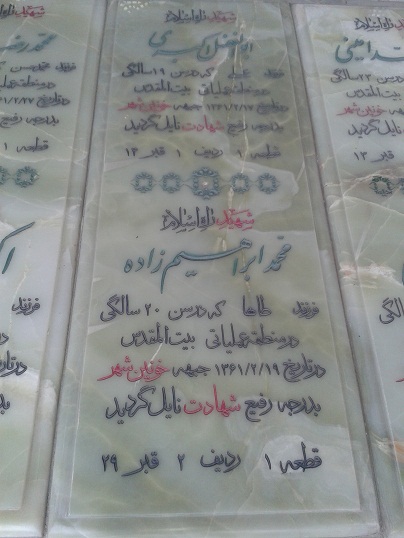 شهید راه اسلام
ابوالفضل اکبری
فرزند علی که در سن ۱۹ سالگی
در منطقه عملیاتی بیت المقدس
در تاریخ ۱۳۶۱/۲/۱۷ جبهه خونین شهر
بدرجه رفیع شهادت نایل گردید
قطعه ۱ ردیف ۱ قبر ۱۴
شهید راه اسلام
محمد ابراهیم زاده
فرزند طاها که در سن ۲۰ سالگی
در منطقه عملیاتی بیت المقدس
در تاریخ ۱۳۶۱/۲/۱۹ جبهه خونین شهر
بدرجه رفیع شهادت نایل گردید
قطعه ۱ ردیف ۲ قبر ۲۹
شهید راه اسلام
امینی
در سن ۲۲ سالگی
بیت المقدس
جبهه خونین شهر
شهادت نایل گردید
قبر ۱۳
محمد رضا
فرزند
در منطقه
در تاریخ
بدرجه رفیع
قطعه ۱
فرزند